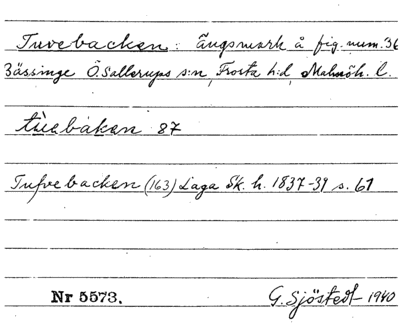 Tuvebacken: ängsmark å fig. num. 36
Bässinge Ö. Sallerups s:n, Frosta h:d, Malmöh. l.
tùebàkan 87
Tufvebacken (163) Laga Sk. h. 1837-39 s. 61
Nr 5573. G. Sjöstedt 1940